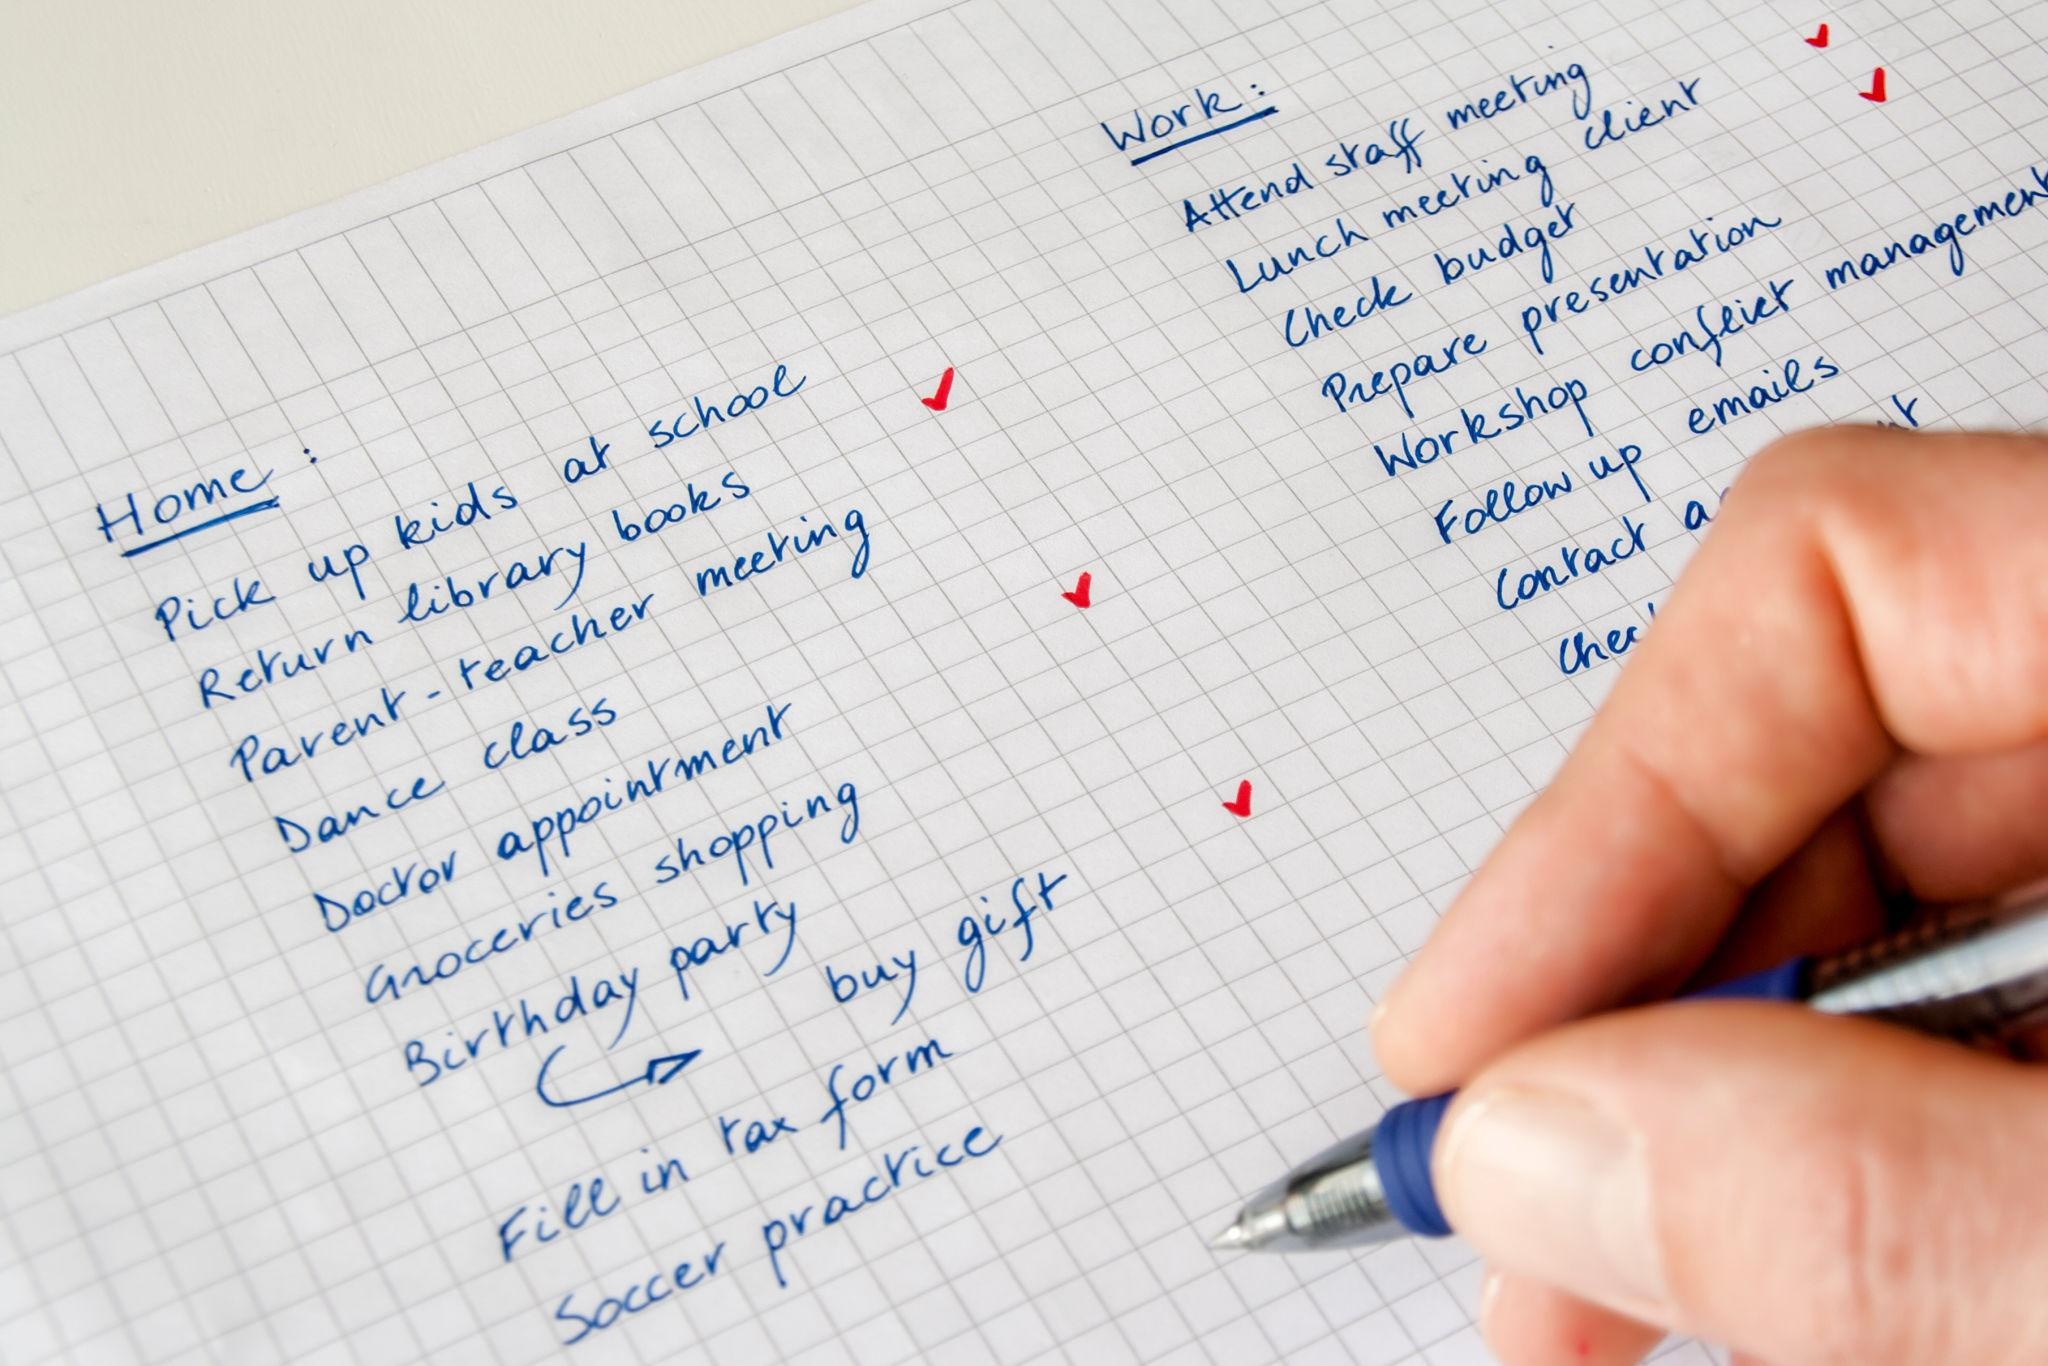 Home :
Pick up kids at school ✓
Return library books
Parent-teacher meeting
Dance class ✓
Doctor appointment
Groceries shopping
Birthday party ✓
buy gift
Fill in tax form
Soccer practice
Work :
Attend staff meeting ✓
Lunch meeting client ✓
Check budget
Prepare presentation
Workshop conflict management
Follow up emails
Contact